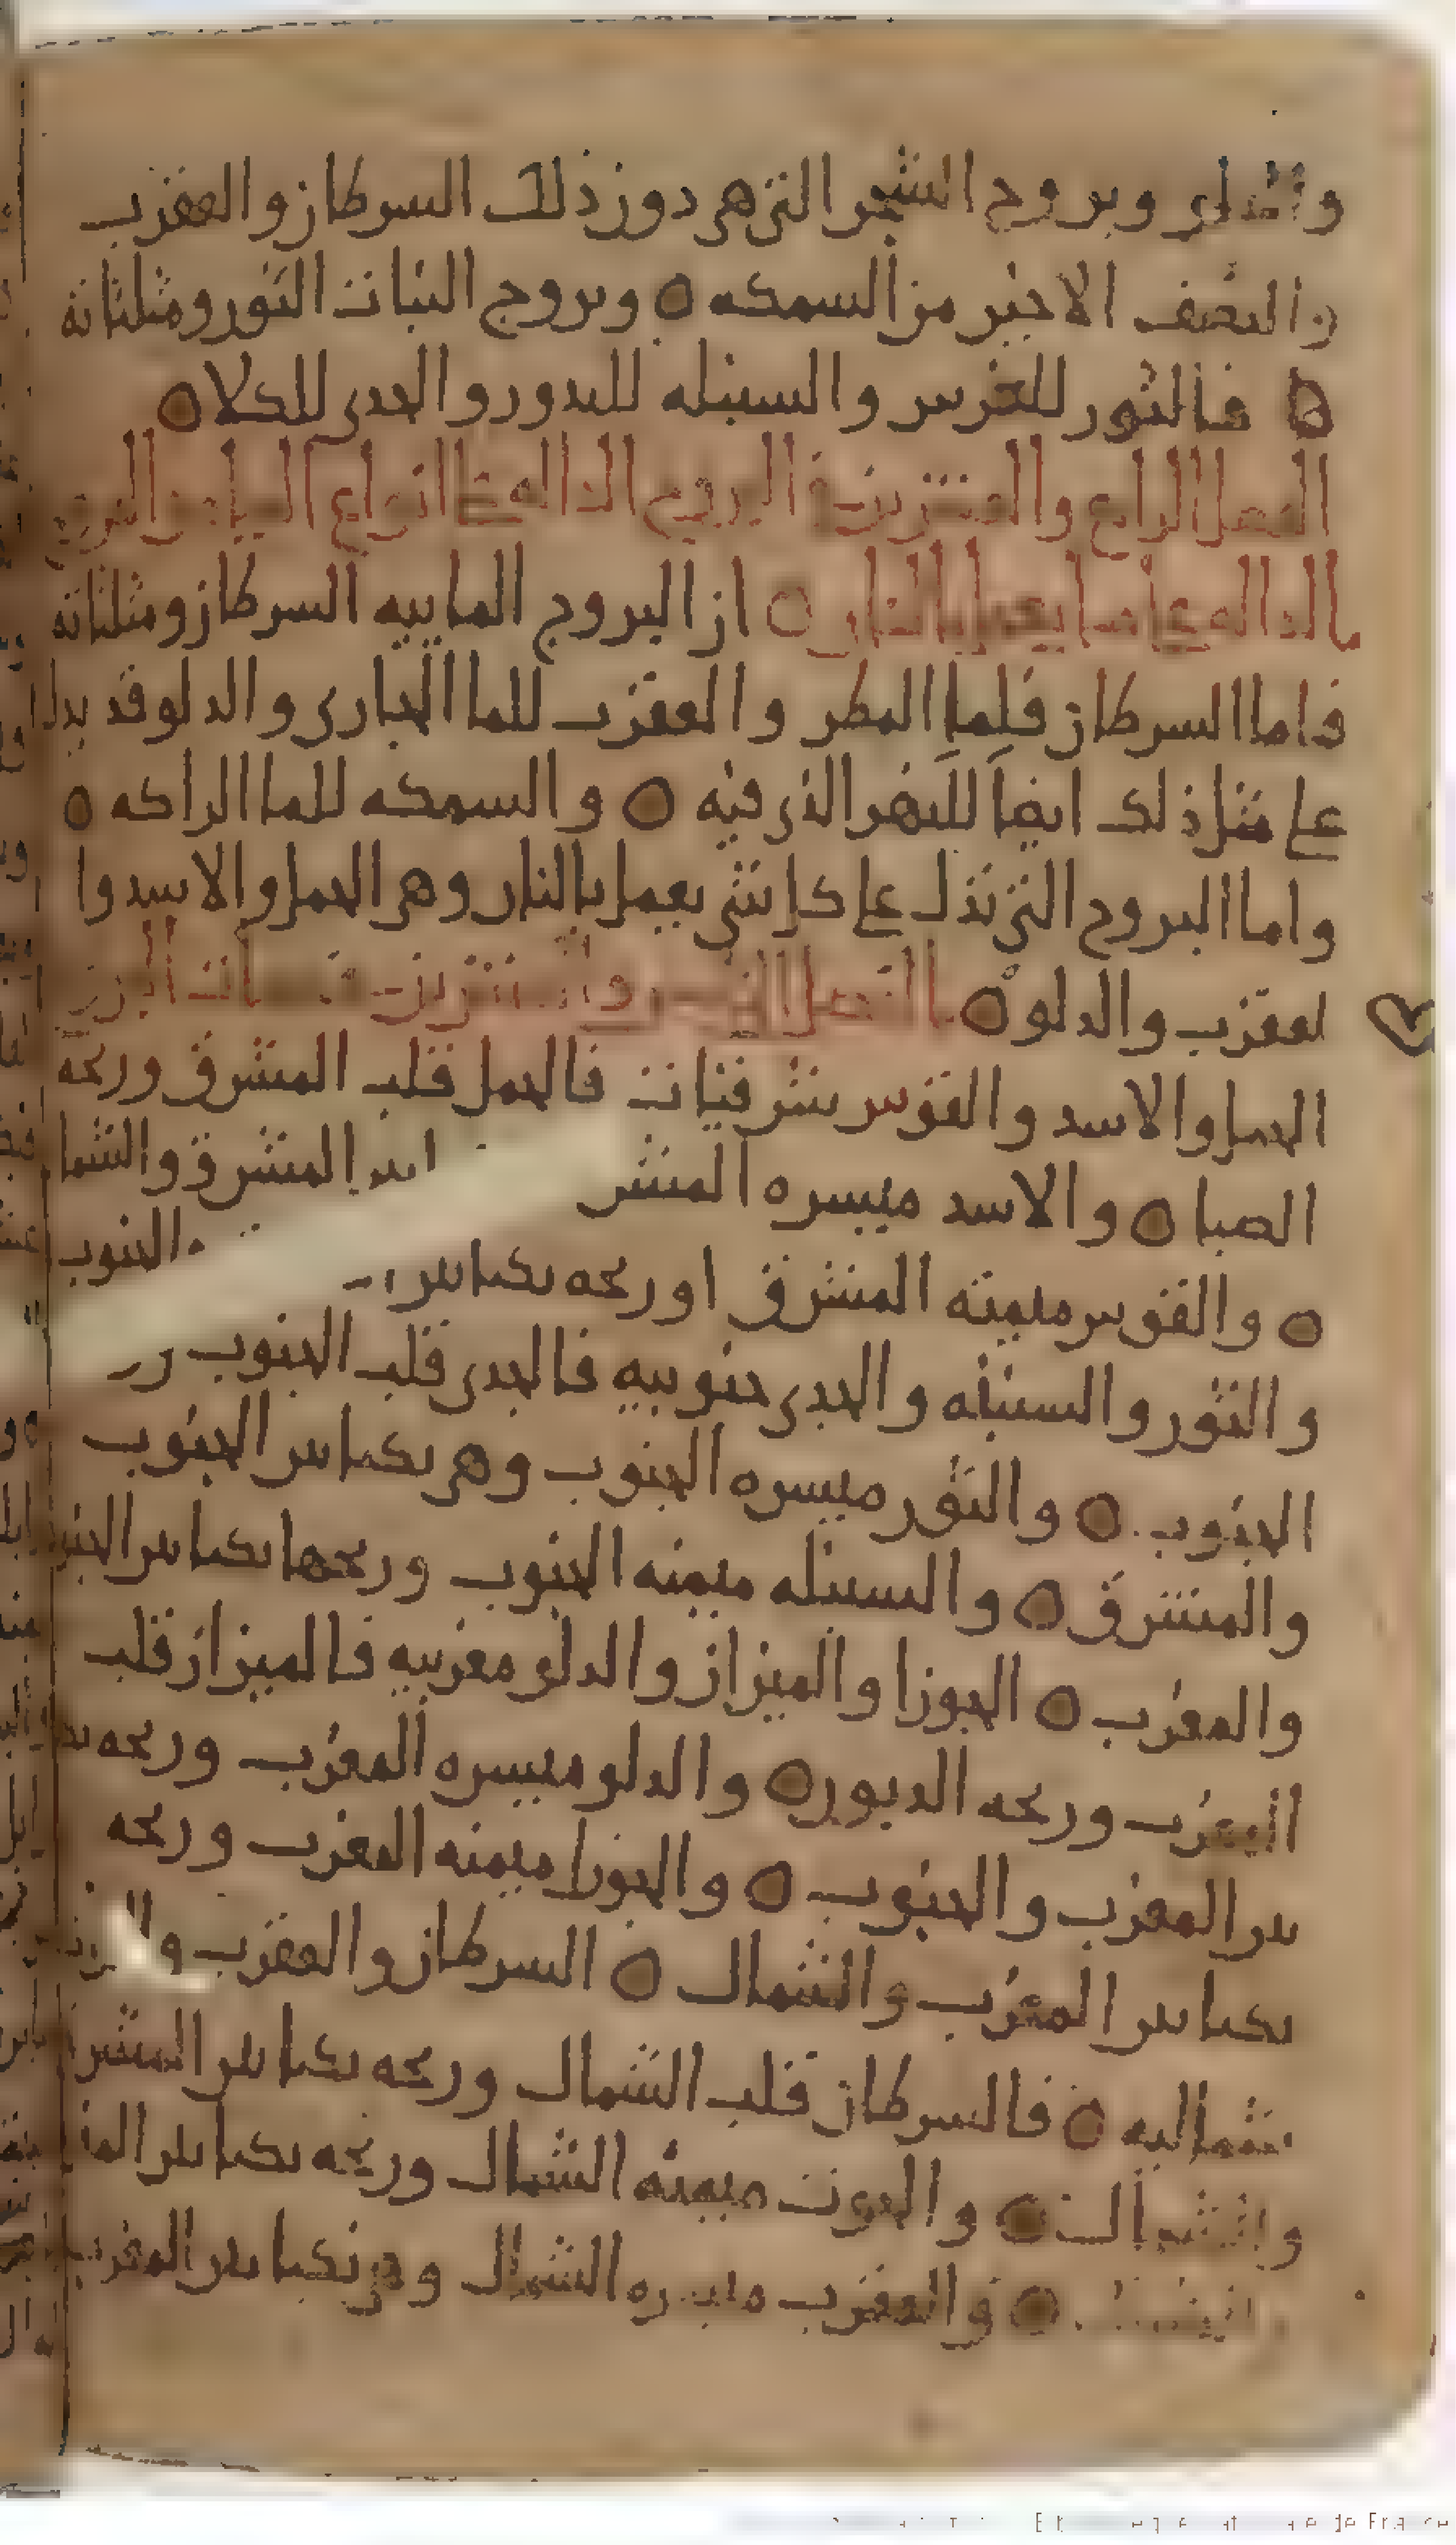 والدلو وبروج الشجر التي هي دون ذلك السرطان والعقرب
والنصف الاخير من السمكه ٥ وبروج النبات الثور ومثلثاته
٥ فالثور للغرس والسنبله للبذور والجدي للكلا ٥
الفصل الرابع والعشرين في البروج الداله على انواع المياه والبروج
الداله على ما يعمل بالنار ٥ ان البروج الماييه السرطان ومثلثاته
فاما السرطان فلماا المطر والعقرب للماا الجاري والدلو قد يدل
على مثل ذلك ايضاً للنهر الذي فيه ٥ والسمكه للماا الراكه ٥
واما البروج التي تدل على كل شي يعمل بالنار وهي الحمل والاسد وا
لعقرب والدلو ٥ الفصل والعشرين
الحمل والاسد والقوس شرقيات فالحمل قلب المشرق وريحه
الصبا ٥ والاسد ميسره المشر بين المشرق والشما
٥ والقوس ميمنه المشرق او ريحه نكبا بين الجنوب
والثور والسنبله والجدي جنوبيه فالجدي قلب الجنوب
الجنوب ٥ والثور ميسره الجنوب وهي نكبا بين الجنوب
والمشرق ٥ والسنبله ميمنه الجنوب وريحها نكبا بين الجنو
والمغرب ٥ الجوزا والميزان والدلو مغربيه فالميزان قلب
المغرب وريحه الدبور ٥ والدلو ميسره المغرب وريحه
بين المغرب والجنوب ٥ والجوزا ميمنه المغرب وريحه
نكبا بين المغرب والشمال ٥ السرطان والعقرب
شماليه ٥ فالسرطان قلب الشمال وريحه نكبا بين المشرق
والشمال ٥ والحوت ميمنه الشمال وريحه نكبا بين
٥ والعقرب ميسره الشمال نكبا بين المغرب
de France